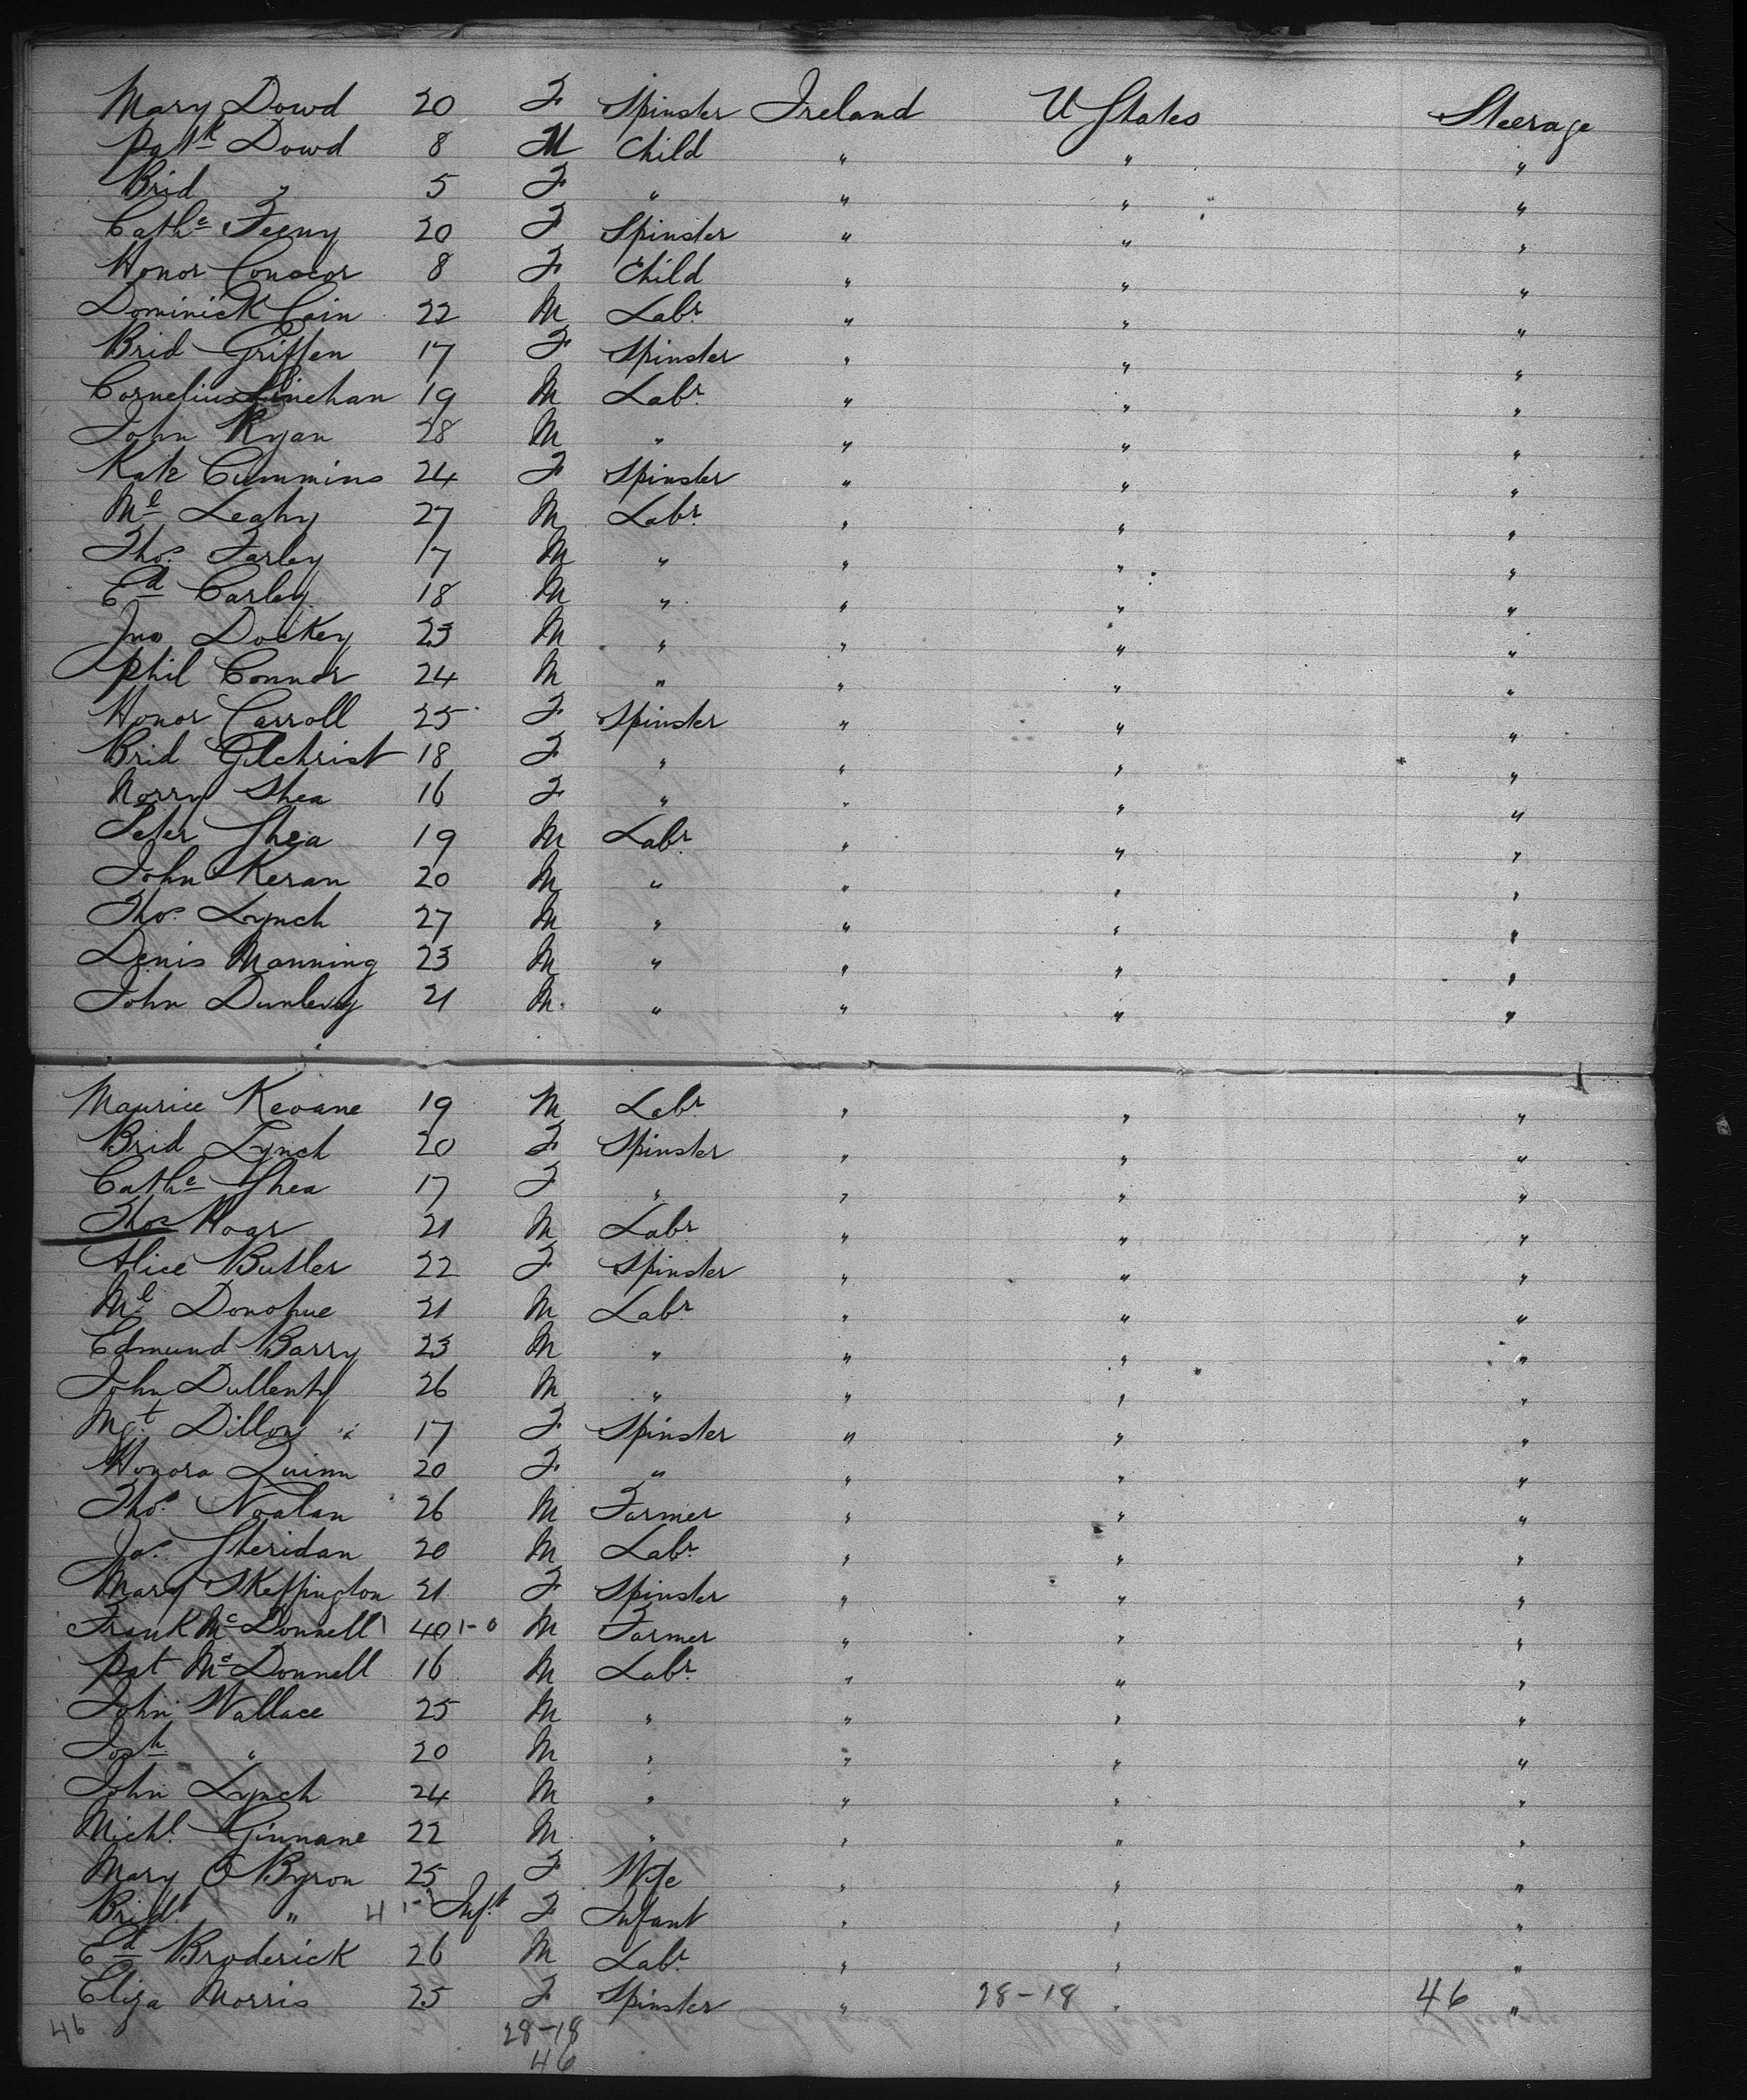 Mary Dowd 20 F Spinster Ireland U States Steerage
Patk Dowd 8 M Child " " "
Brid " 5 F " " " "
Cathe Feeny 20 F Spinster " " "
Honor Connor 8 F Child " " "
Dominick Cain 22 M Labr " " "
Brid Griffen 17 F Spinster " " "
Cornelius Linehan 19 M Labr " " "
John Ryan 28 M " " " "
Kate Cummins 24 F Spinster " " "
Ml Leahy 27 M Labr " " "
Thos Farley 17 M " " " "
Ed Carley 18 M " " " "
Jno Dockey 23 M " " " "
Phil Connor 24 M " " " "
Honor Carroll 25 F Spinster " " "
Brid Gilchrist 18 F " " " "
Norry Shea 16 F " " " "
Peter Shea 19 M Labr " " "
John Keran 20 M " " " "
Thos Lynch 27 M " " " "
Denis Manning 23 M " " " "
John Dunlevy 21 M " " " "
Maurice Keoane 19 M Labr " " "
Brid Lynch 20 F Spinster " " "
Cathe Shea 17 F " " " "
Thos Hoar 21 M Labr " " "
Alice Butler 22 F Spinster " " "
Ml Donohue 21 M Labr " " "
Edmund Barry 23 M " " " "
John Dullenty 26 M " " " "
Mgt Dillon 17 F Spinster " " "
Honora Quinn 20 F " " " "
Thos Noalan 26 M Farmer " " "
Jas Sheridan 20 M Labr " " "
Mary Skeffington 21 F Spinster " " "
Frank McDonnell 1 40 1-0 M Farmer " " "
Pat McDonnell 16 M Labr " " "
John Wallace 25 M " " " "
Josh " 20 M " " " "
John Lynch 24 M " " " "
Michl Ginnane 22 M " " " "
Mary O Byron 25 F Wife " " "
Bridt " Inft F Infant " " "
Ed Broderick 26 M Labr " " "
Eliza Morris 25 F Spinster " 28-18 " 46 "
46 28-18
46